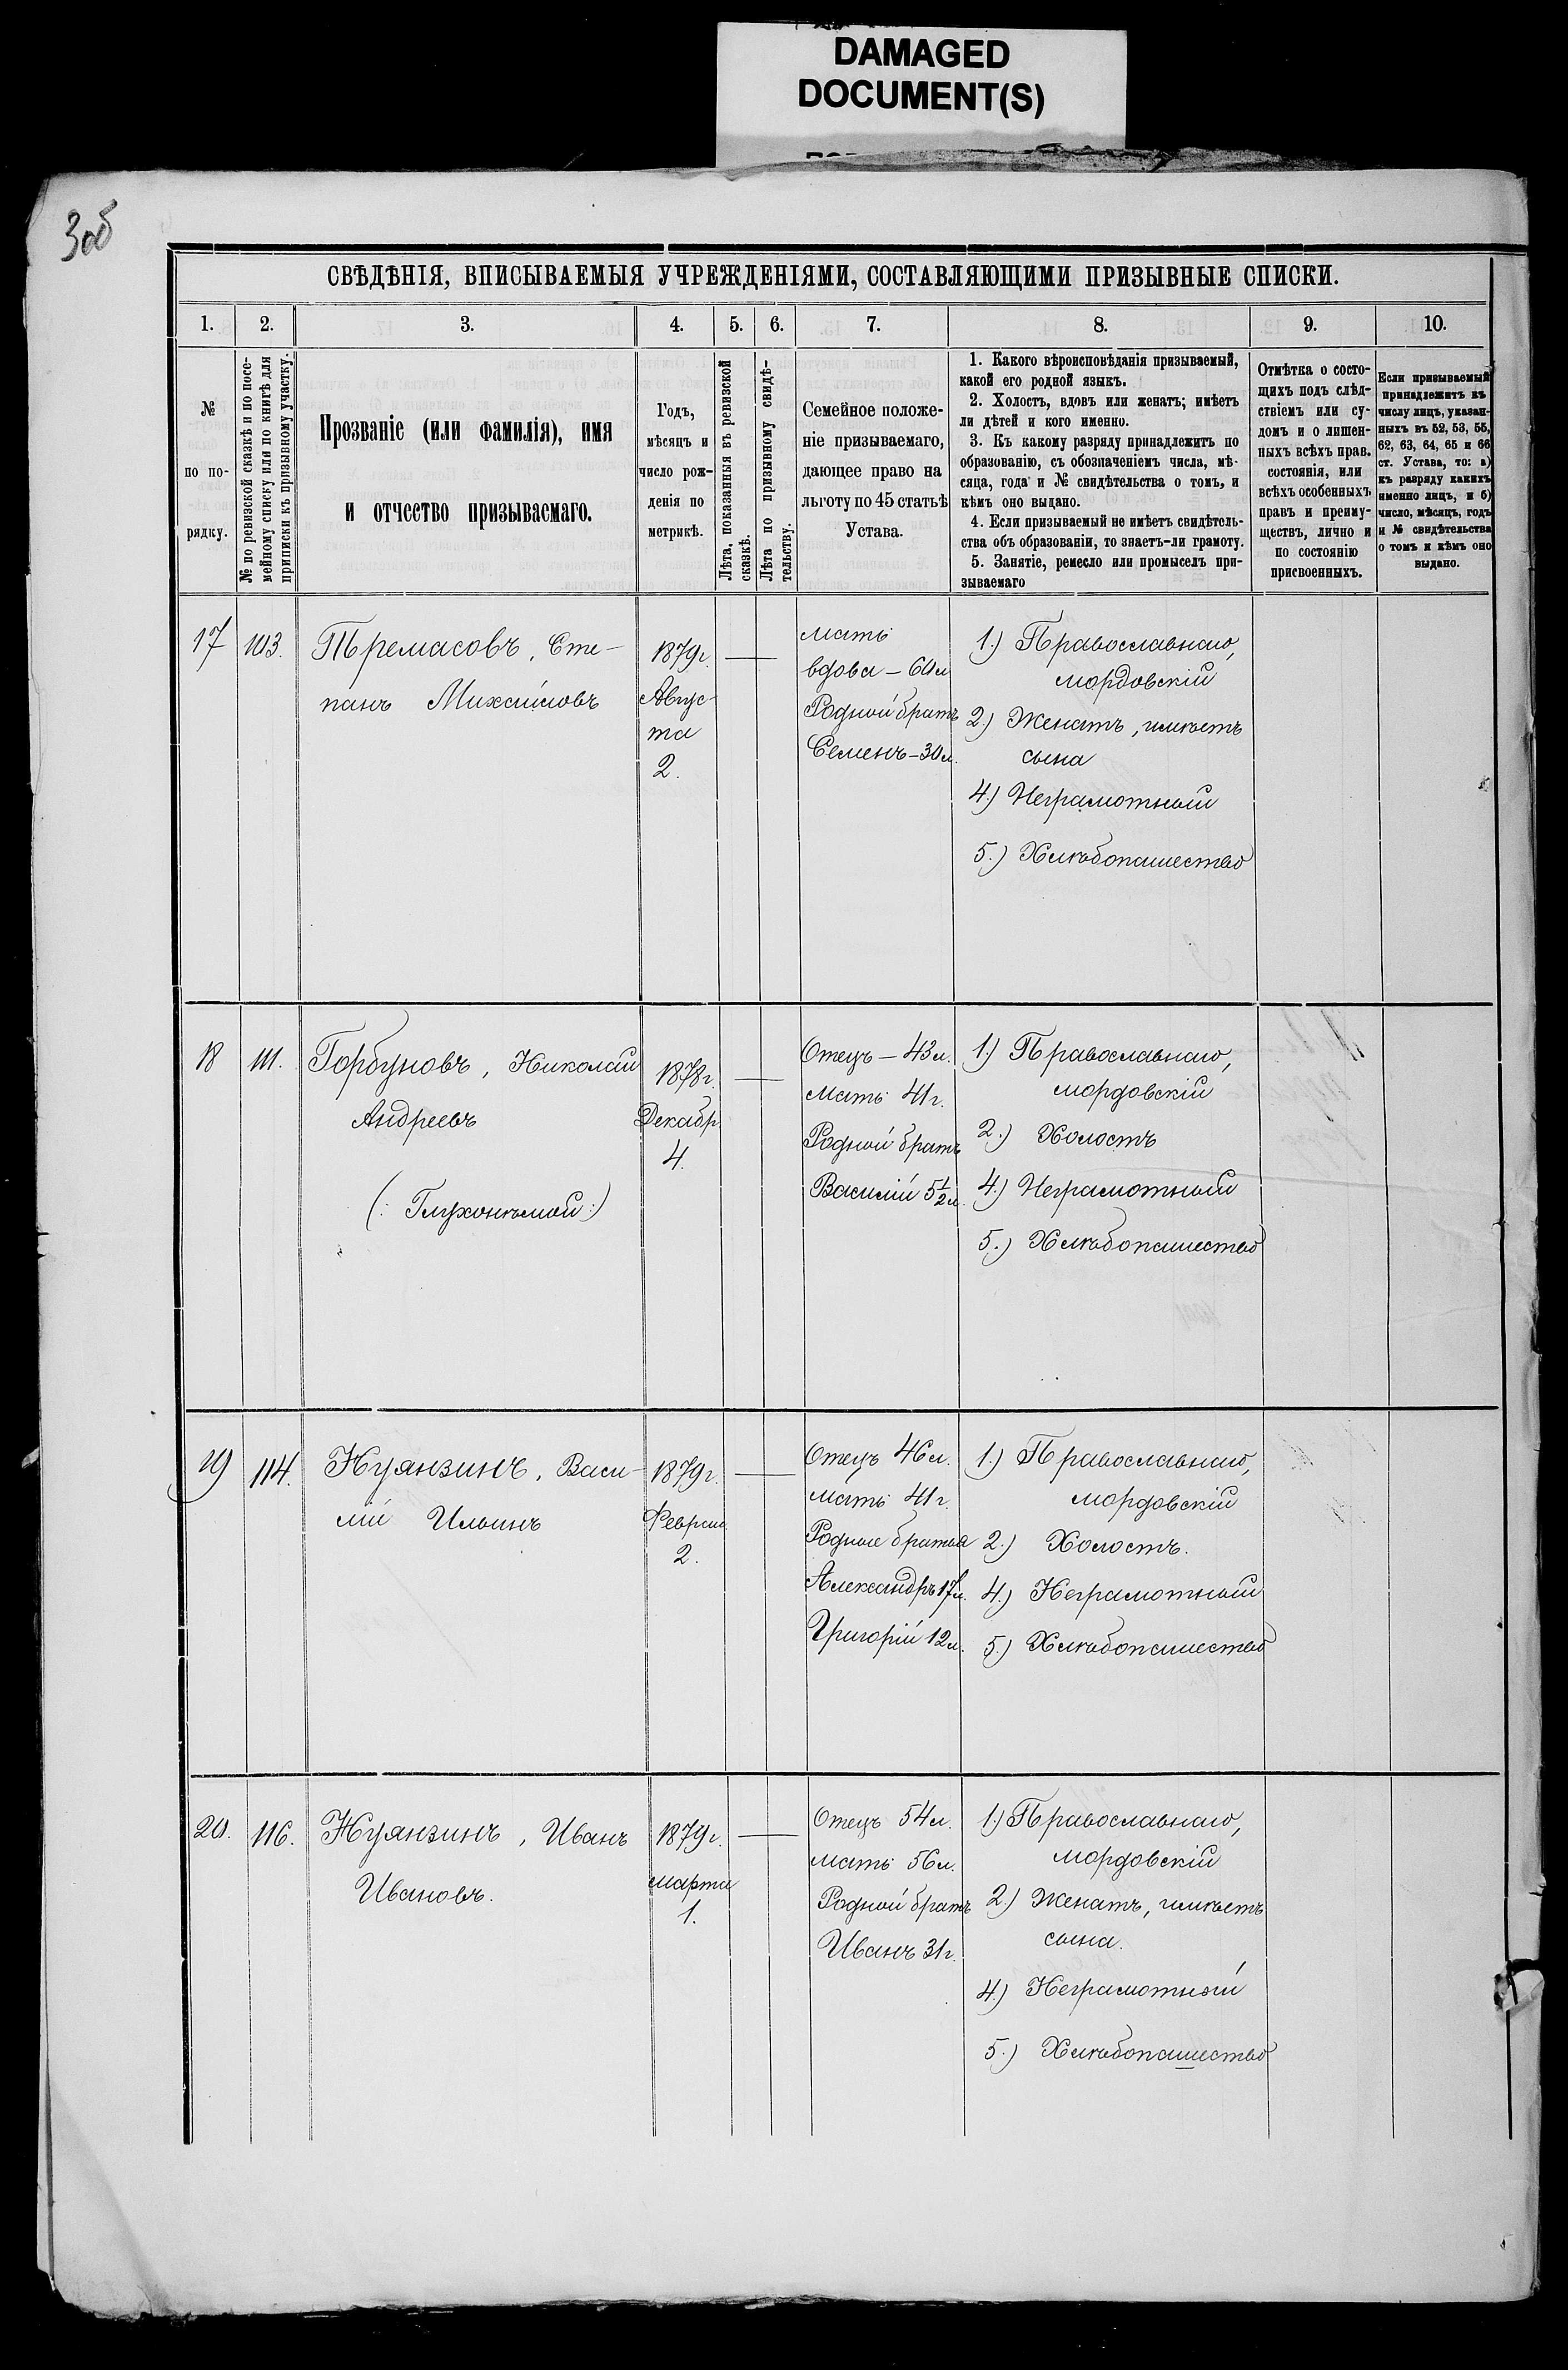 DAMAGED
DOCUMENT(S)
3об
СВѢДѢНІЯ, ВПИСЫВАЕМЫЯ УЧРЕЖДЕНІЯМИ, СОСТАВЛЯЮЩИМИ ПРИЗЫВНЫЕ СПИСКИ.
1. 2. 3. 4. 5. 6. 7. 8. 9. 10.
№
по по-
рядку.
№ по ревизской сказкѣ и по посе-
мейному списку или по книгѣ для
приписки къ призывному участку.
Прозваніе (или фамилія), имя
и отчество призываемаго.
Годъ,
мѣсяцъ и
число рож-
денія по
метрикѣ.
Лѣта, показанныя въ ревизской
сказкѣ.
Лѣта по призывному свидѣ-
тельству.
Семейное положе-
ніе призываемаго,
дающее право на
льготу по 45 статьѣ
Устава.
1. Какого вѣроисповѣданія призываемый,
какой его родной языкъ.
2. Холостъ, вдовъ или женатъ; имѣетъ
ли дѣтей и кого именно.
3. Къ какому разряду принадлежитъ по
образованію, съ обозначеніемъ числа, мѣ-
сяца, года и № свидѣтельства о томъ, и
кѣмъ оно выдано.
4. Если призываемый не имѣетъ свидѣтель-
ства объ образованіи, то знаетъ-ли грамоту.
5. Занятіе, ремесло или промыселъ при-
зываемаго
Отмѣтка о состо-
щихъ подъ слѣд-
ствіемъ или су-
домъ и о лишен-
ныхъ всѣхъ прав.
состоянія, или
всѣхъ особенныхъ
правъ и преиму-
ществъ, лично и
по состоянію
присвоенныхъ.
Если призываемый
принадлежитъ къ
числу лицъ, указан-
ныхъ въ 52, 53, 55,
62, 63, 64, 65 и 66
ст. Устава, то: а)
къ разряду какихъ
именно лицъ, и б)
число, мѣсяцъ, годъ
и № свидѣтельства
о томъ и кѣмъ оно
выдано.
17 103.
Пѣремасовъ, Сте-
панъ Михайловъ
1879г.
Авгус
та
2.
мать
вдова – 60л
Родной братъ
Семенъ – 30л.
1.) Православнаго,
мордовскій
2.) Женатъ, имѣетъ
сына
4.) Неграмотный
5.) Хлѣбопашество
18 111.
Горбуновъ, Николай
Андреевъ
(: Глухонѣмой :)
1878г.
Декабр
4.
Отецъ – 43л.
Мать 41г.
Родной братъ
Василій 5½л.
1.) Православнаго,
мордовскій
2.) Холостъ
4.) Неграмотный
5.) Хлѣбопашество
19 114.
Нуянзинъ, Васи-
лій Ильинъ
1879г.
Феврал
2.
Отецъ 46л.
мать 41г.
Родные братья
Александръ 17л.
Григорій 12л.
1.) Православнаго,
мордовскій
2.) Холостъ.
4.) Неграмотный
5.) Хлѣбопашество
20. 116.
Нуянзинъ, Иванъ
Ивановъ.
1879г.
марта
1.
Отецъ 54л.
мать 56л.
Родной братъ
Иванъ 31г.
1.) Православнаго,
мордовскій
2.) Женатъ, имѣетъ
сына.
4.) Неграмотный
5.) Хлѣбопашество